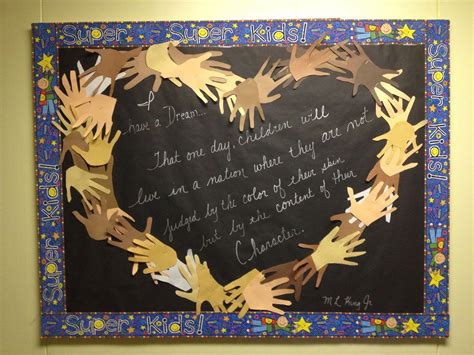 Super Super Kids! Super Kids!
Super Kids!
Super Kids!
I
have a Dream...
That one day, children will
live in a nation where they are not
judged by the color of their skin
but by the content of their
Character.
M L King Jr
Super Kids! Super Kids!